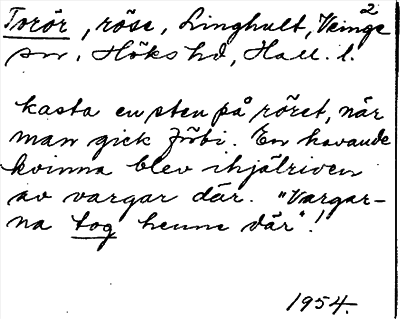 Torör, röse, Linghult, Veinge 2
sn, Höks hd, Hall. l.
kasta en sten på röret, när
man gick förbi. En havande
kvinna blev ihjälriven
av vargar där. "Vargar-
na tog henne där"!
1954.